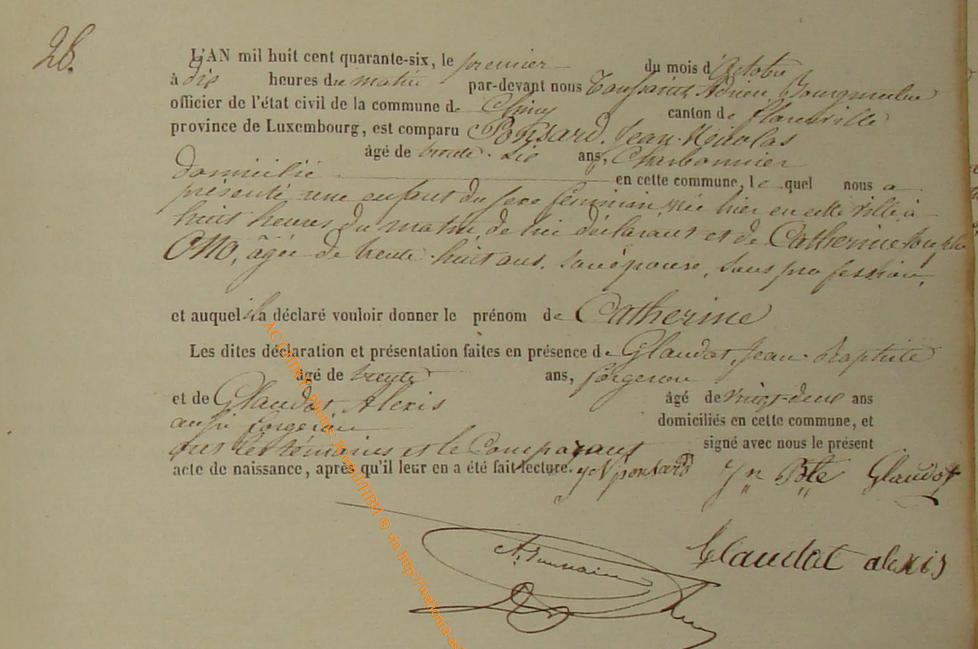 28.
L'AN mil huit cent quarante-six, le premier du mois d'Octobre
à dix heures du matin par-devant nous Toussaint Adrien Bourgmestre
officier de l'état civil de la commune de Chiny canton de florenville
province de Luxembourg, est comparu Ponsard, Jean-Nicolas
âgé de trente-six ans, Charbonnier
domicilié en cette commune, le quel nous a
présenté une enfant du sexe féminin, née hier en cette ville à
huit heures du matin, de lui déclarant et de Catherine Josephe
Otto, âgée de trente-huit ans, son épouse, sans profession,
et auquel il a déclaré vouloir donner le prénom de Catherine
Les dites déclaration et présentation faites en présence de Glaudot, Jean-Baptiste
âgé de trente ans, forgeron
et de Glaudot Alexis âgé de vingt-deux ans
aussi forgeron domiciliés en cette commune, et
ont les témoins et le Comparant signé avec nous le présent
acte de naissance, après qu'il leur en a été fait lecture. JN ponsard Jn Bte Glaudot
Glaudot alexis
A. Toussaint